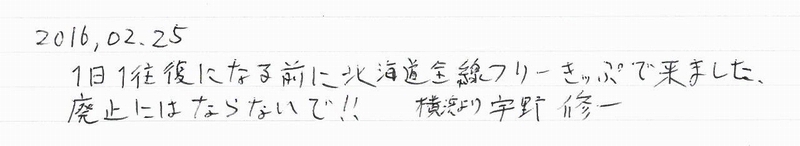 2016,02.25
1日1往復になる前に北海道全線フリーきっぷで来ました、
廃止にはならないで!! 横浜より宇野修一